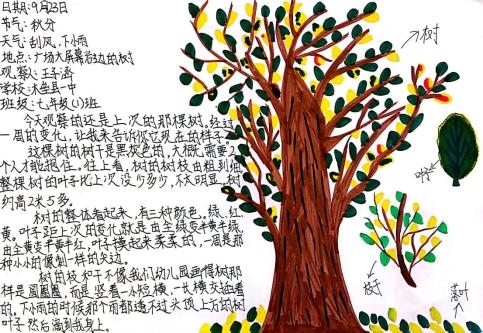 日期:9月23日
节气:秋分
天气:刮风、下小雨
地点:广场大屏幕旁边的树
观察人:王子涵
学校:木垒县一中
班级:七年级(1)班
今天观察的还是上次的那棵树。经过
一周的变化,让我来告诉你它现在的样子
这棵树的树干是黑灰色的,大概需要2
个人才能抱住。往上看,树的树枝由粗到细
整棵树的叶子比上次没少多少,不太明显。树
约高2米5多。
树的整体看起来,有三种颜色。绿、红、
黄。叶子距上次的变化就是由全绿变半黄半绿,
由全黄变半黄半红,叶子摸起来柔柔的,一周是那
种小小的像刺一样的尖边。
树的枝和干不像我们幼儿园画得树那
样是圆圈圈,而是竖着一小短横,一长横交油着
的,下小雨的时候那个雨都透不过头顶上方的树
叶子,然后滴到我身上。
树
叶
树干
落叶